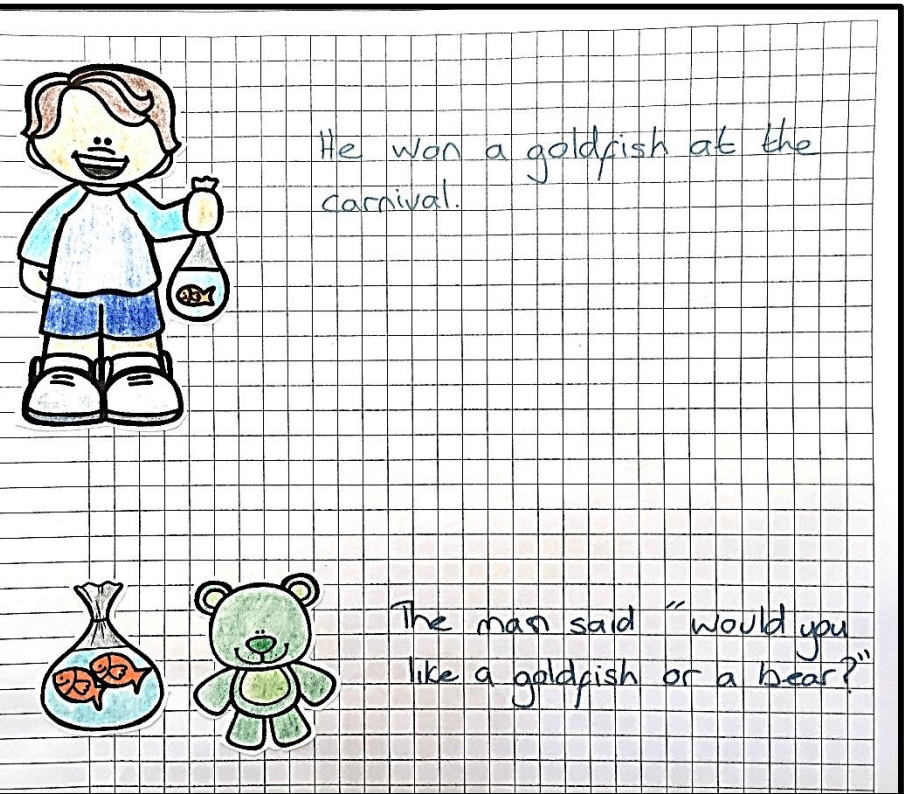 He won a goldfish at the
carnival.
The man said "would you
like a goldfish or a bear?"